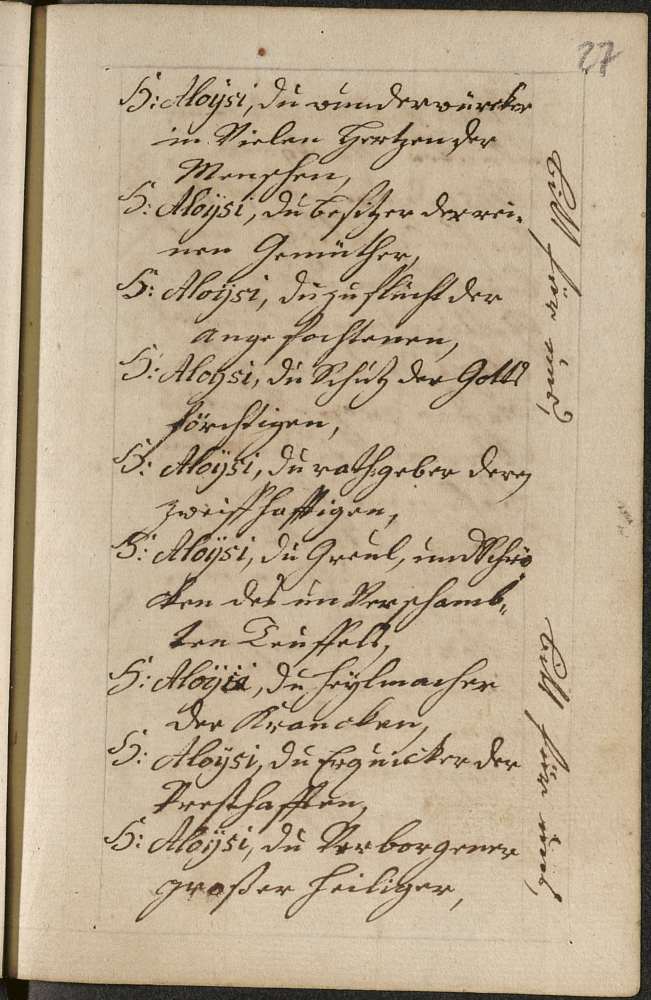 27
H: Aloÿsi, du wunderwürcker
in Vielen Hertzen der
Menschen,
H: Aloÿsi, du besitzer der rei-
nen Gemüther,
H: Aloÿsi, du zuflucht der
angefochtenen,
H: Aloÿsi, du Schutz der Gotts
förchtigen,
H: Aloÿsi, du rathgeber deren
zweiffhafftigen,
H: Aloÿsi, du Greul, und Schrö
cken des unverschamb-
ten Teuffels,
H: Aloÿsi, du heÿlmacher
der Krancken,
H: Aloÿsi, du Erquicker der
Presthafften,
H: Aloÿsi, du Verborgener
großer heiliger,
bitt für uns,
bitt für uns,